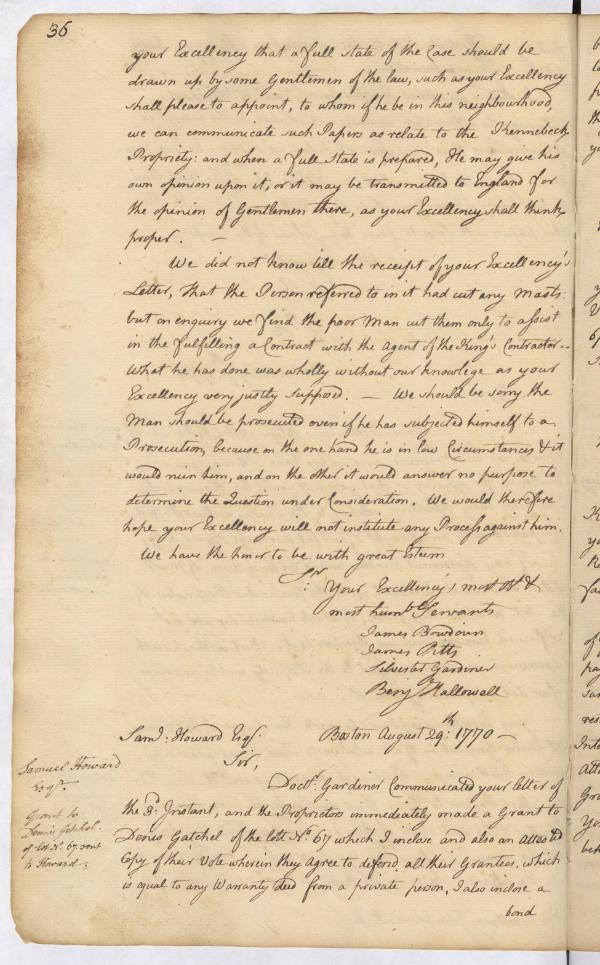 36
your Excellency that a full state of the Case should be
drawn up by some Gentlemen of the law, such as your Excellency
shall please to appoint, to whom if he be in this neighbourhood,
we can communicate such Papers as relate to the Kennebeck
Propriety: and when a full State is prepared, He may give his
own opinion upon it, or it may be transmitted to England for
the opinion of Gentlemen there, as your Excellency shall think
proper. —
We did not know till the receipt of your Excellency's
Letter, that the Person referred to in it had cut any Masts:
but on enquiry we find the poor Man cut them only to assist
in the fulfilling a Contract with the Agent of the King's Contractor--
What he has done was wholly without our knowlege as your
Excellency very justly supposed. — We should be sorry the
Man should be prosecuted even if he has subjected himself to a
Prosecution, because on the one hand he is in low Circumstances & it
would ruin him, and on the other it would answer no purpose to
determine the Question under Consideration. We would therefore
hope your Excellency will not institute any Process against him.
We have the honor to be with great Esteem
Sr.
Your Excellency's most Obt. &
most humb. Servants
James Bowdoin
James Pitts
Silvester Gardiner
Benj Hallowell
Saml: Howard Esqr. Boston August 29th: 1770 —
Sir,
Samuel Howard
Esqr.
Doctr. Gardiner Communicated your letter of
Grant to
Dennis Getchel
of lot No. 67 sent
to Howard
the 3d: Instant, and the Proprietors immediately made a Grant to
Denis Gatchel of the lott No. 67 which I inclose and also an Attested
Copy of their Vote wherein they Agree to defend all their Grantees, which
is equal to any Warranty deed from a private person, I also inclose a
bond